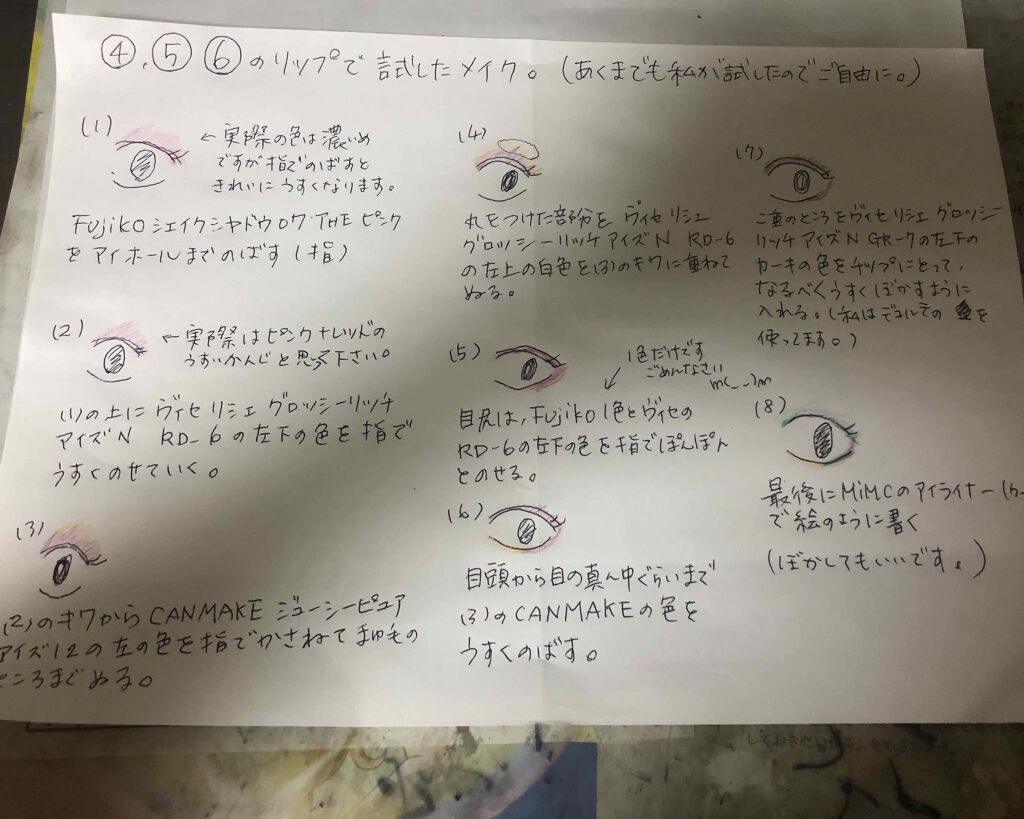 ④,⑤⑥のリップで試したメイク。(あくまでも私が試したのでご自由に。)
(1)
←実際の色は濃いめ
ですが指でのばすと
きれいにうすくなります。
Fujikoシェイクシャドウ07 THE ピンク
をアイホールまでのばす(指)
(2)
←実際はピンクtレッドの
うすいかんじと思って下さい。
(1)の上にヴィセ リシェ グロッシーリッチ
アイズN RD-6の左下の色を指で
うすくのせていく。
(3)
(2)のキワからCANMAKE ジューシーピュア
アイズ12の左の色を指でかさねてまゆ毛の
ところまでぬる。
(4)
丸をつけた部分をヴィセ リシェ
グロッシーリッチアイズN RD-6
の左上の白色を(3)のキワに重ねて
ぬる。
(5)
1色だけです
ごめんなさい
m(_ _)m
目尻は,Fujiko1色とヴィセの
RD-6の左下の色を指でぽんぽん
とのせる。
(6)
目頭から目の真ん中ぐらいまで
(3)のCANMAKEの色を
うすくのばす。
(7)
二重のところをヴィセ リシェ グロッシー
リッチアイズN GR-7の左下の
カーキの色をチップにとって,
なるべくうすくぼかすように
入れる。(私はデコルテの を
使ってます。)
(8)
最後にMiMCのアイライナー
で絵のように書く
(ぼかしてもいいです。)